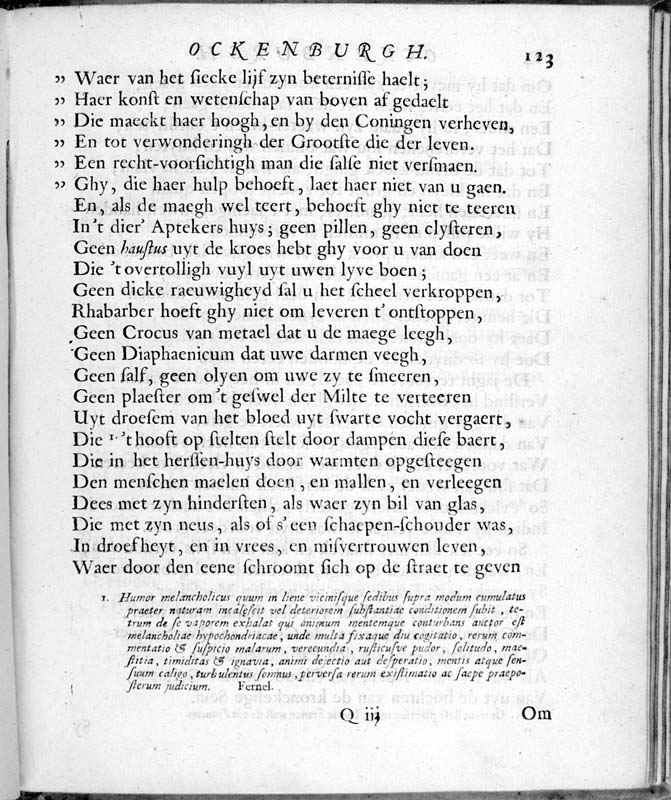 OCKENBURGH. 123
„ Waer van het ſiecke lijf zyn beterniſſe haelt;
„ Haer konſt en wetenſchap van boven af gedaelt
„ Die maeckt haer hoogh, en by den Coningen verheven,
„ En tot verwonderingh der Grootſte die der leven.
„ Een recht-voorſichtigh man die ſalſe niet verſmaen.
„ Ghy, die haer hulp behoeft, laet haer niet van u gaen.
En, als de maegh wel teert, behoeft ghy niet te teeren
In 't dier' Aptekers huys; geen pillen, geen clyſteren,
Geen hauſtus uyt de kroes hebt ghy voor u van doen
Die 't overtolligh vuyl uyt uwen lyve boen;
Geen dicke raeuwigheyd ſal u het ſcheel verkroppen,
Rhabarber hoeft ghy niet om leveren t' ontſtoppen,
Geen Crocus van metael dat u de maege leegh,
Geen Diaphaenicum dat uwe darmen veegh,
Geen ſalf, geen olyen om uwe zy te ſmeeren,
Geen plaeſter om 't geſwel der Milte te verteeren
Uyt droeſem van het bloed uyt ſwarte vocht vergaert,
Die 1. 't hooft op ſtelten ſtelt door dampen dieſe baert,
Die in het herſſen-huys door warmten opgeſteegen
Den menſchen maelen doen, en mallen, en verleegen
Dees met zyn hinderſten, als waer zyn bil van glas,
Die met zyn neus, als of s' een ſchaepen-ſchouder was,
In droefheyt, en in vrees, en miſvertrouwen leven,
Waer door den eene ſchroomt ſich op de ſtraet te geven
1. Humor melancholicus quum in liene viciniſque ſedibus ſupra modum cumulatus
praeter naturam incaleſcit vel deteriorem ſubſtantiae conditionem ſubit, te-
trum de ſe vaporem exhalat qui animum mentemque conturbans auctor eſt
melancholiae hypochondriacae, unde multa fixaque diu cogitatio, rerum com-
mentatio & ſuſpicio malarum, verecundia, ruſticuſve pudor, ſolitudo, mae-
ſtitia, timiditas & ignavia, animi dejectio aut deſperatio, mentis atque ſen-
ſuum caligo, turbulentus ſomnus, perverſa rerum exiſtimatio ac ſaepe praepo-
ſterum judicium. Fernel.
Q iij Om